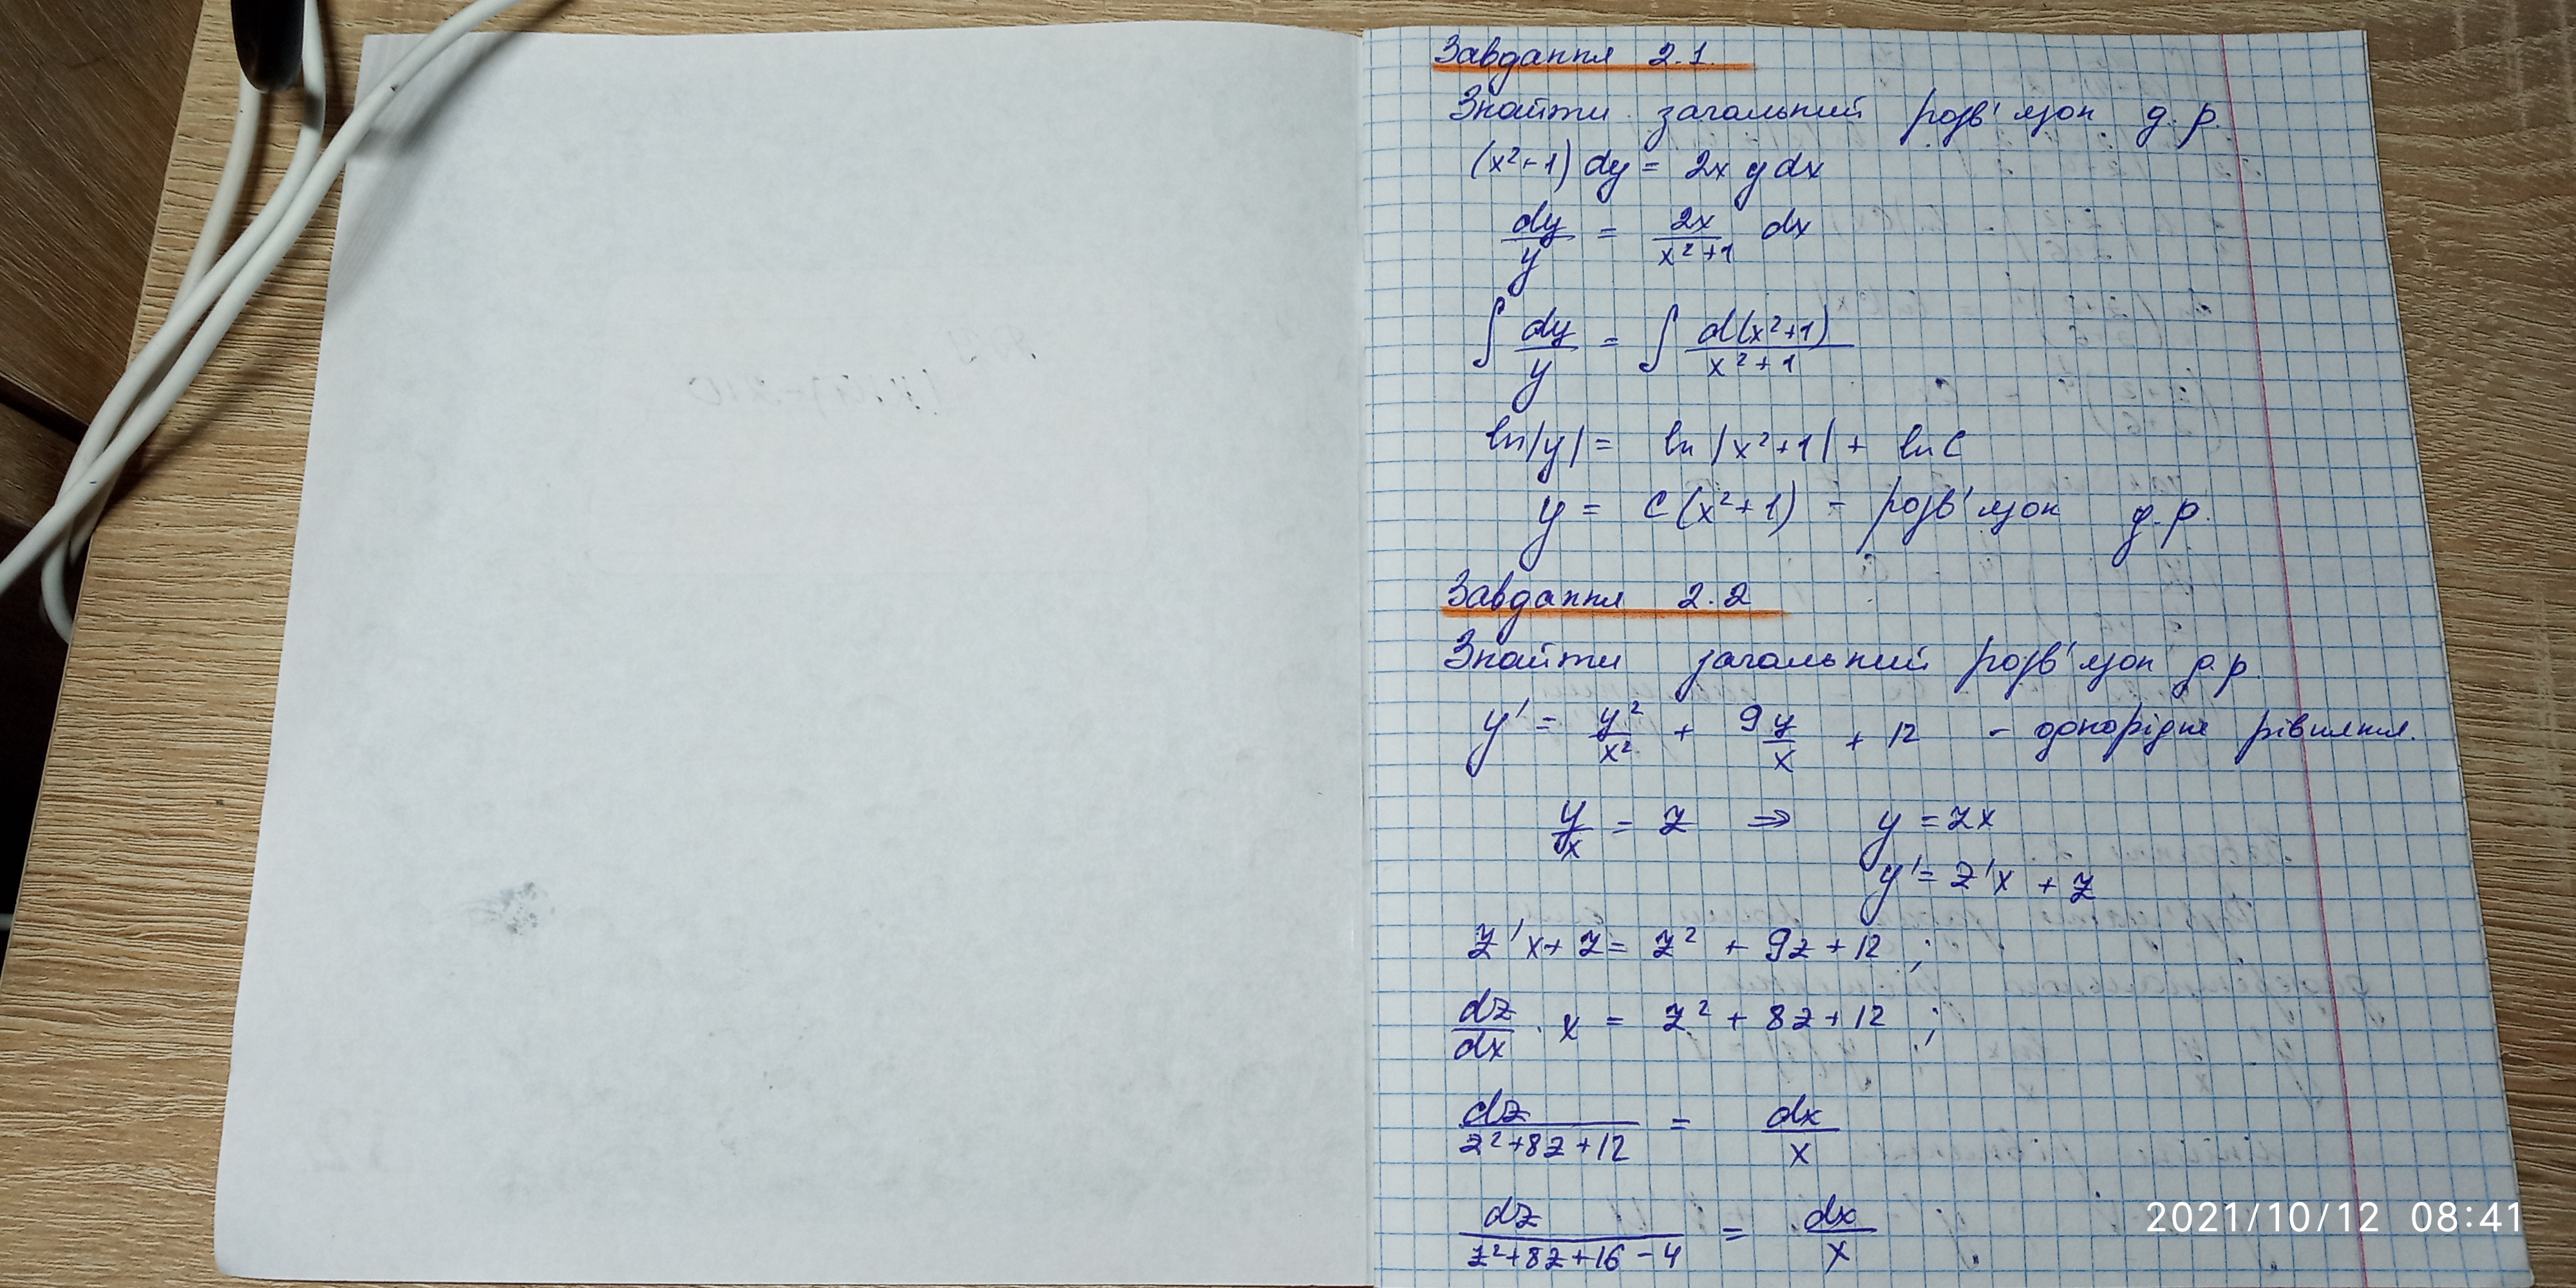 Завдання 2.1.
Знайти загальний розв'язок д.р.
(x²+1) dy = 2x y dx
dy/y = 2x/(x²+1) dx
∫ dy/y = ∫ d(x²+1)/(x²+1)
ln|y| = ln|x²+1| + ln C
y = C(x²+1) - розв'язок д.р.
Завдання 2.2
Знайти загальний розв'язок д.р.
y' = y²/x² + 9y/x + 12 - однорідне рівняння.
y/x = z ⇒ y = zx
y' = z'x + z
z'x + z = z² + 9z + 12 ;
dz/dx · x = z² + 8z + 12 ;
dz/(z²+8z+12) = dx/x
dz/(z²+8z+16-4) = dx/x
2021/10/12 08:41